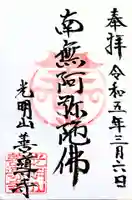 奉拝
令和五年三月六日
南無阿弥陀佛
光明山
善導寺